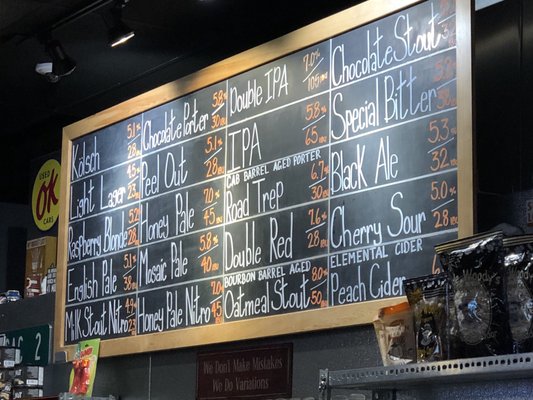 Kölsch 5.1% 28
Light Lager
Raspberry Blonde 5.2% 28
English Pale 5.1%
Milk Stout Nitro 23
Chocolate Porter 5.8% 30
Peel Out 5.1% 28
Honey Pale 7.0% 45
Mosaic Pale 5.8% 40
Honey Pale Nitro 7.0% 45
Double IPA 7.0% 105
IPA 5.8% 65
CAB BARREL AGED PORTER
Road Trip 6.7% 30
Double Red 7.6% 28
BOURBON BARREL AGED
Oatmeal Stout 8.0% 50
Chocolate Stout
Special Bitter
Black Ale 5.3% 32
Cherry Sour 5.0% 28
ELEMENTAL CIDER
Peach Cider
USED
OK
CARS
We Don't Make Mistakes
We Do Variations